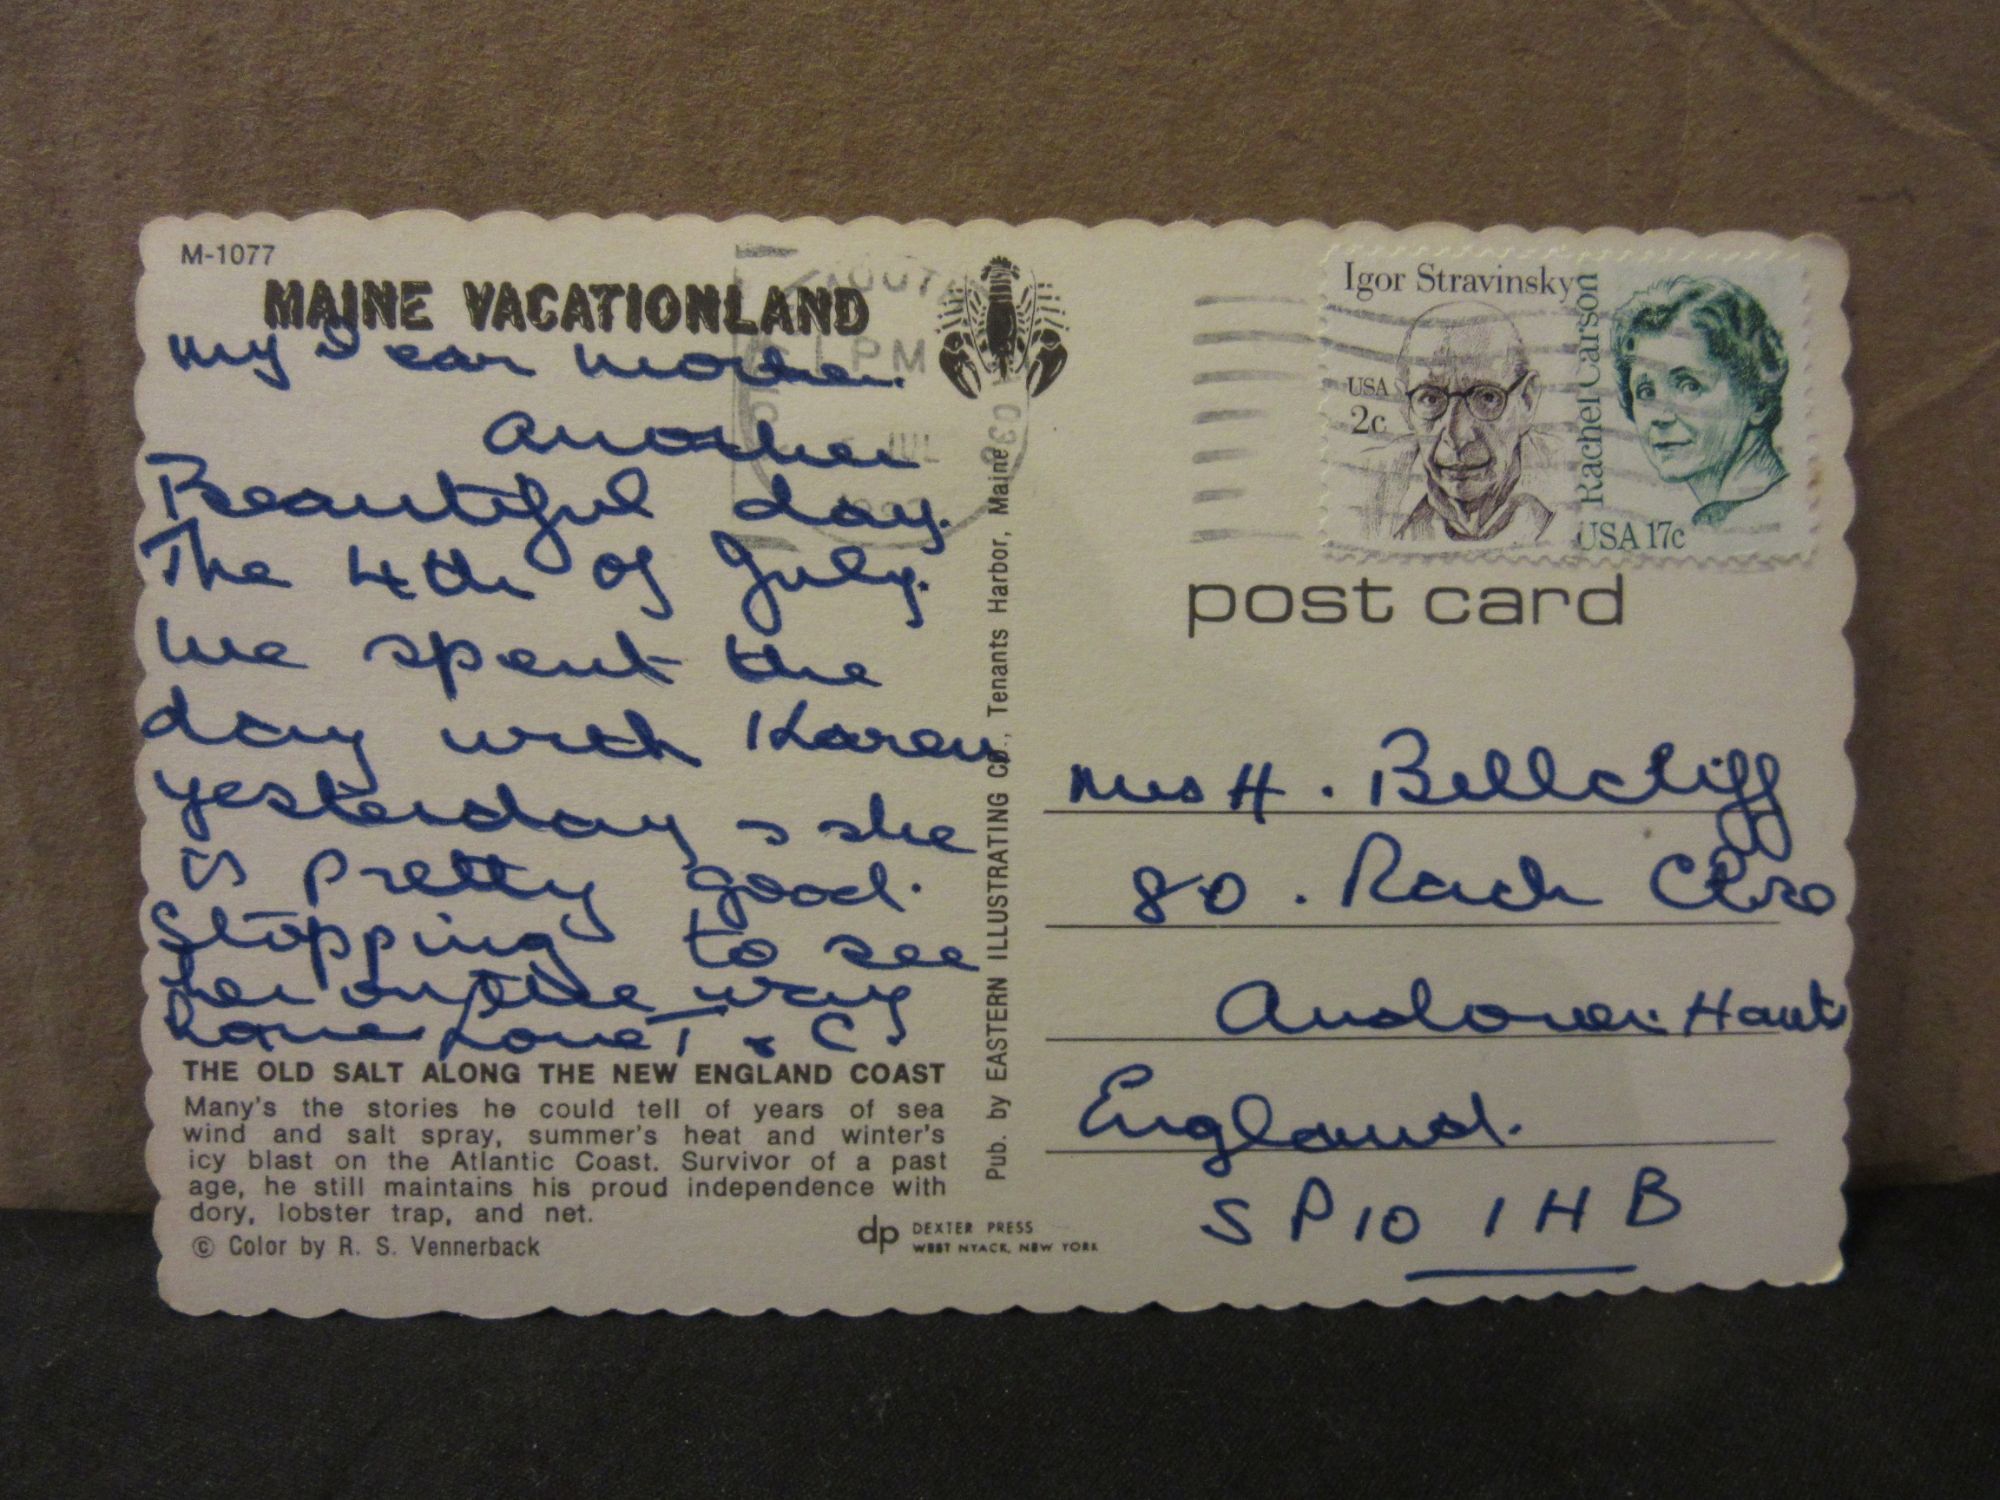 M-1077
MAINE VACATIONLAND
My Dear mother.
Another
Beautiful day.
The 4th of July.
We spent the
day with Karen
yesterday & she
is pretty good.
Stopping to see
her on the way
home Love T & C.
THE OLD SALT ALONG THE NEW ENGLAND COAST
Many's the stories he could tell of years of sea
wind and salt spray, summer's heat and winter's
icy blast on the Atlantic Coast. Survivor of a past
age, he still maintains his proud independence with
dory, lobster trap, and net.
© Color by R. S. Vennerback
dp DEXTER PRESS
WEST NYACK, NEW YORK
Pub. by EASTERN ILLUSTRATING CO., Tenants Harbor, Maine
PM
JUL
Igor Stravinsky
USA
2c
Rachel Carson
USA 17c
post card
Mrs H. Bellcliff
80.
Andover. Hants
England.
SP10 1HB